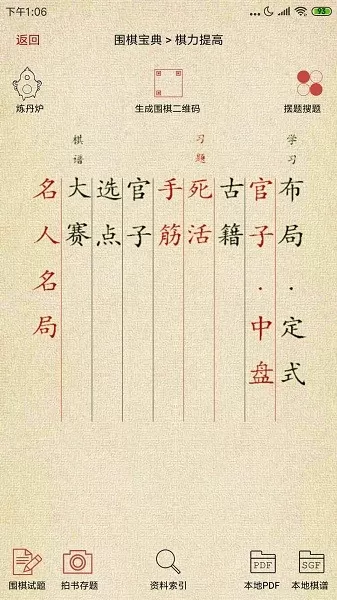 下午1:06
93
返回
围棋宝典 > 棋力提高
炼丹炉
生成围棋二维码
摆题搜题
学习
习题
棋谱
布局.定式
官子.中盘
古籍
死活
手筋
官子
选点
大赛
名人名局
围棋试题
拍书存题
资料索引
PDF
本地PDF
SGF
本地棋谱